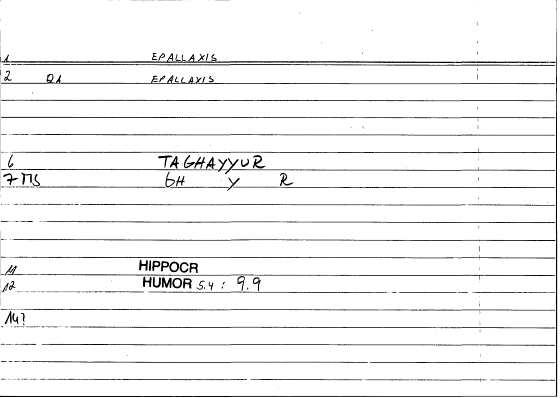 1 EPALLAXIS
2 Q1 EPALLAXIS
6 TAGHAYYUR
7 MS GH Y R
11 HIPPOCR
12 HUMOR 5.4 : 9.9
14?